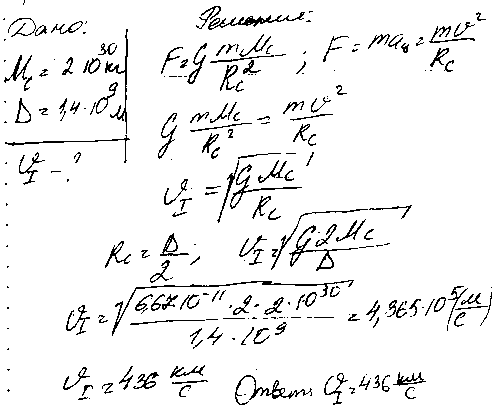 Дано:
M_c = 2·10^30 кг
D = 1,4·10^9 м
v_I - ?
Решение:
F = G mM_c/R_c^2 ; F = ma_ц = mv^2/R_c
G mM_c/R_c^2 = mv^2/R_c
v_I = √(GM_c/R_c)
R_c = D/2 ; v_I = √(G2M_c/D)
v_I = √(6,67·10^-11 · 2 · 2·10^30/1,4·10^9) = 4,365·10^5 (м/с)
v_I = 436 км/с Ответ: v_I = 436 км/с